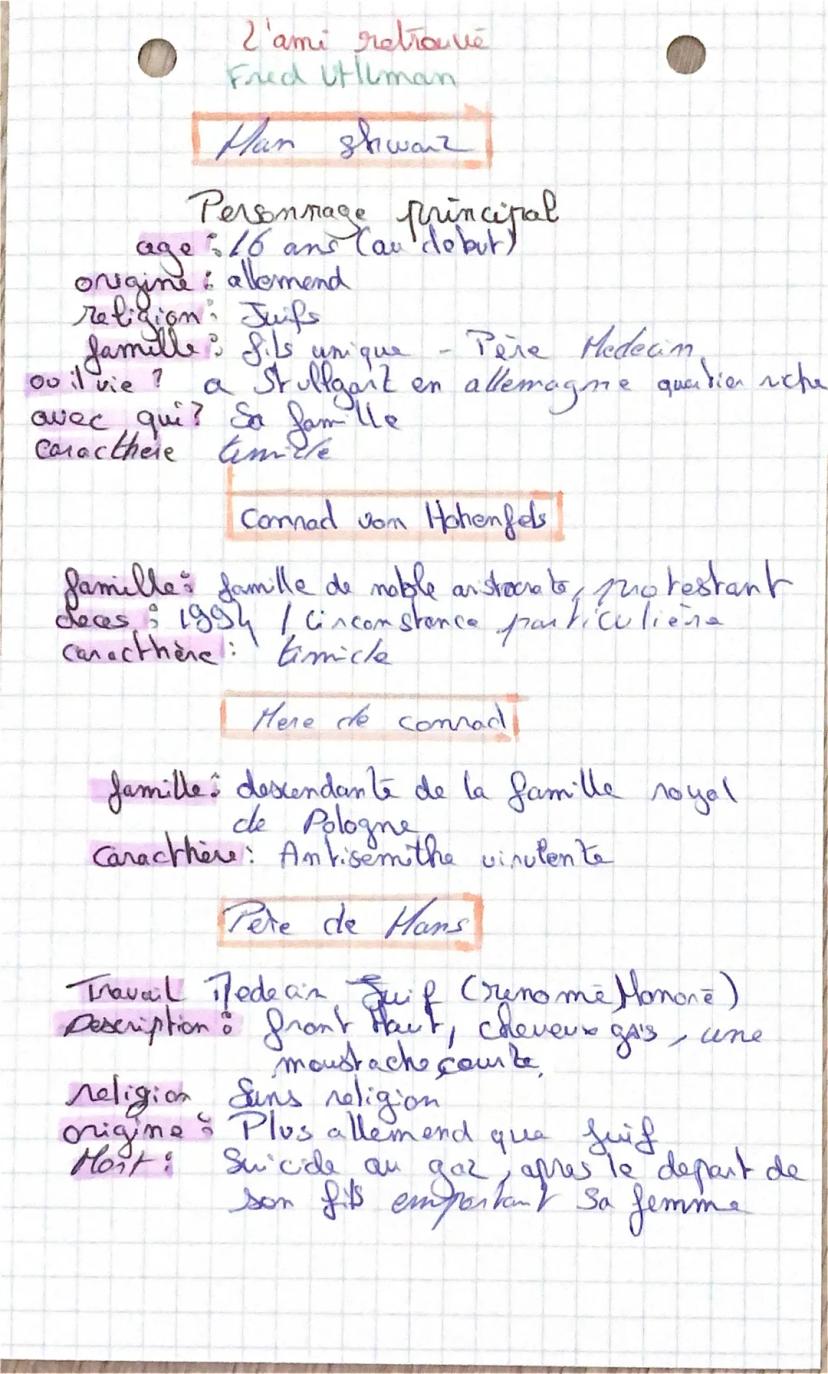 L'ami retrouvé
Fred Ullman
Han shwarz
Personnage principal
age : 16 ans (au début)
origine : allemend
religion : Juifs
famille : fils unique - Père Medecin
ou il vie ? a Stullgart en allemagne quartier riche
avec qui ? Sa famille
caracthere timide
Conrad von Hohenfels
famille : famille de noble aristocrate, protestant
deces : 1994 / Circonstence particulière
caracthère : timide
Mere de conrad
famille : descendante de la famille royal
de Pologne
Caracthère : Antisemithe virulente
Père de Hans
Travail Medecin Juif (renomé, Honoré)
Description : front Haut, cheveux gris, une
moustache courte,
religion Sans religion
origine : Plus allemend que juif
Mort : Suicide au gaz, apres le depart de
son fils emportant sa femme